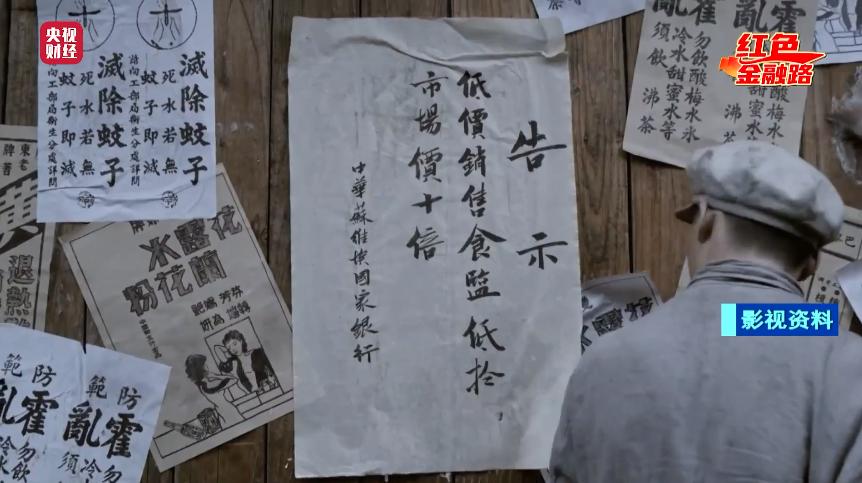 央视财经
红色
金融路
影视资料
告示
低價銷售食監 低扵，
市場價十倍
中華蘇維埃國家銀行
滅除蚊子
死水若無
蚊子即滅
請向工部局衛生分處詳問
滅除蚊子
死水若無
蚊子即滅
請向工部局衛生分處詳問
花露水
蘭花粉
退熱
霍亂
勿飲酸梅水氷
冷水甜蜜水等
須飲沸茶
防範
霍亂
勿飲
冷
須
防範
霍亂
勿飲
冷水